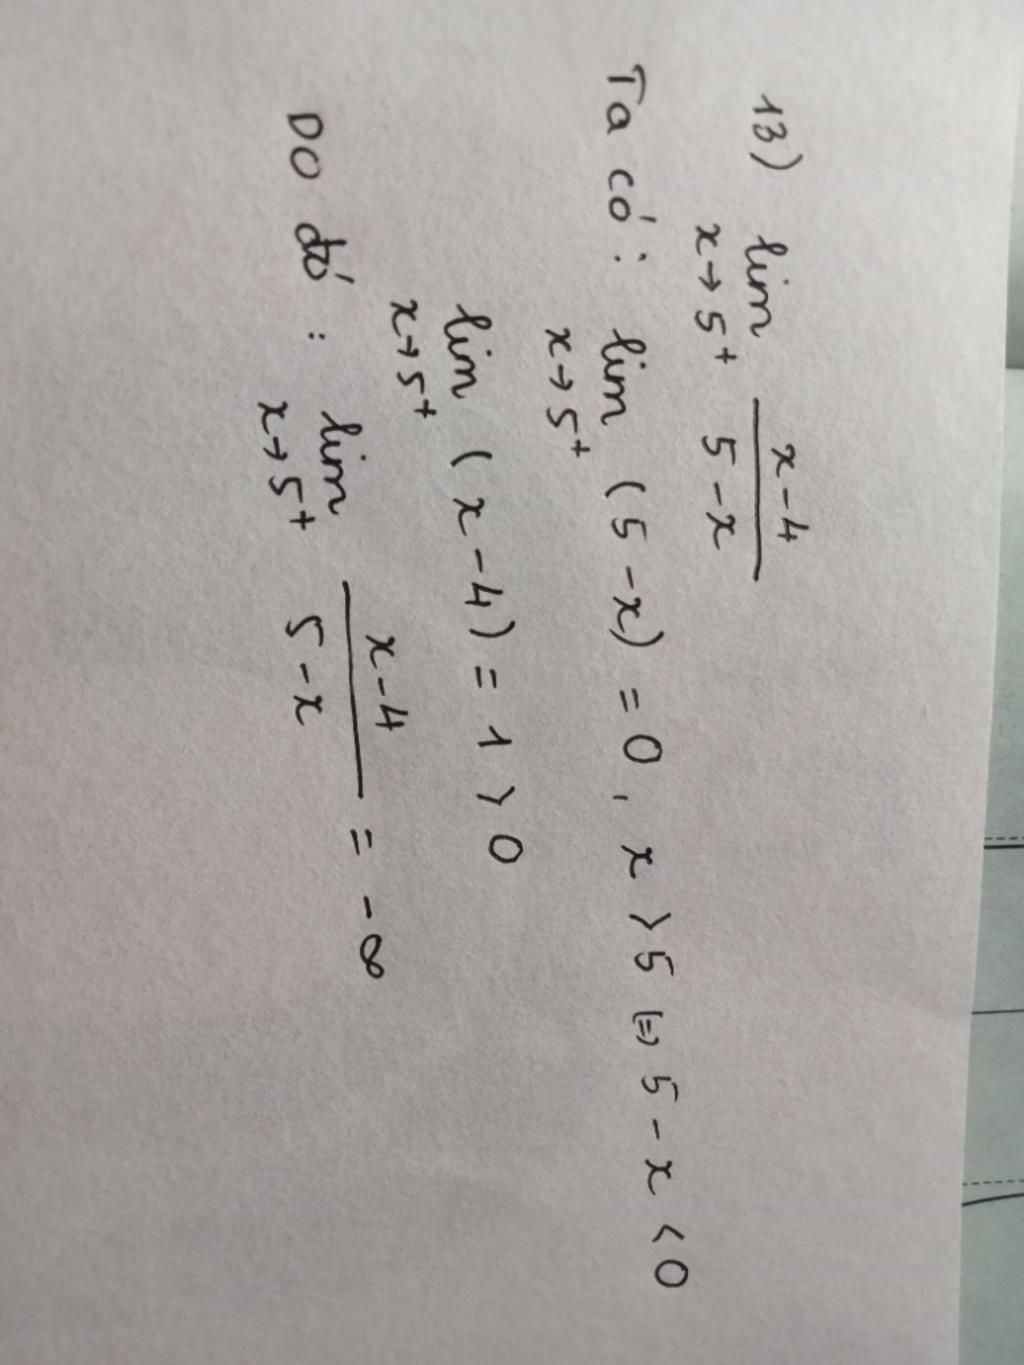 13) lim x→5⁺ (x-4)/(5-x)
Ta có: lim x→5⁺ (5-x) = 0, x > 5 (=) 5-x < 0
lim x→5⁺ (x-4) = 1 > 0
DO đó: lim x→5⁺ (x-4)/(5-x) = -∞